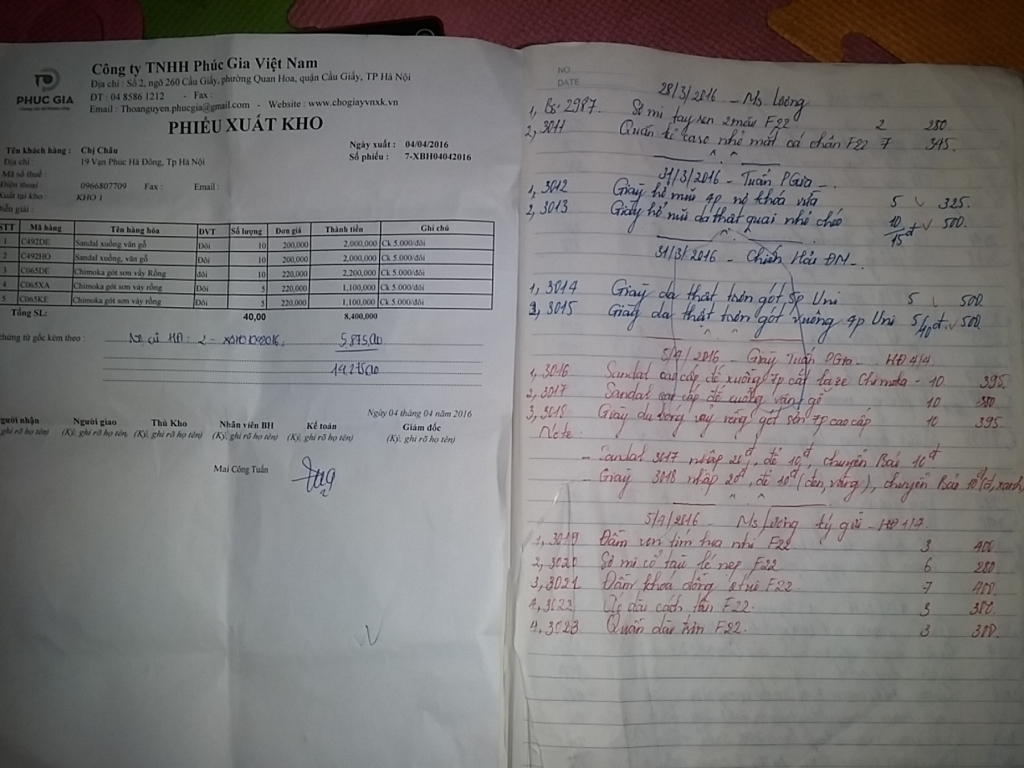 PHUC GIA
Công ty TNHH Phúc Gia Việt Nam
Địa chỉ : Số 2, ngõ 260 Cầu Giấy, phường Quan Hoa, quận Cầu Giấy, TP Hà Nội
ĐT : 04 8586 1212 - Fax :
Email : Thoanguyen.phucgia@gmail.com - Website : www.chogiayvnxk.vn
PHIẾU XUẤT KHO
Ngày xuất : 04/04/2016
Số phiếu : 7-XBH04042016
Tên khách hàng : Chị Châu
Địa chỉ : 19 Vạn Phúc Hà Đông, Tp Hà Nội
Mã số thuế :
Điện thoại 0966807709 Fax : Email :
Xuất tại kho : KHO 1
Diễn giải :
STT Mã hàng Tên hàng hóa ĐVT Số lượng Đơn giá Thành tiền Ghi chú
1 C492DE Sandal xuồng vân gỗ Đôi 10 200,000 2,000,000 Ck 5.000/đôi
2 C492HO Sandal xuồng, vân gỗ Đôi 10 200,000 2,000,000 Ck 5.000/đôi
3 C065DE Chimoka gót sơn váy Rồng đôi 10 220,000 2,200,000 Ck 5.000/đôi
4 C065XA Chimoka gót sơn váy rồng Đôi 5 220,000 1,100,000 Ck 5.000/đôi
5 C065KE Chimoka gót sơn vảy rồng Đôi 5 220,000 1,100,000 Ck 5.000/đôi
Tổng SL: 40,00 8,400,000
chứng từ gốc kèm theo : Nợ cũ HĐ: 5,875,00
14,275,00
Ngày 04 tháng 04 năm 2016
Người nhận Người giao Thủ Kho Nhân viên BH Kế toán Giám đốc
(Ký, ghi rõ họ tên) (Ký, ghi rõ họ tên) (Ký, ghi rõ họ tên) (Ký, ghi rõ họ tên) (Ký, ghi rõ họ tên) (Ký, ghi rõ họ tên)
Mai Công Tuấn
NO
DATE
28/3/2016 - Ms. Lương
1, Bs: 2987. Sơ mi tay sen 2 màu F22 2 280
2, 3011 Quần kẻ caso nhỏ mắt cá chân F22 7 395.
31/3/2016 - Tuấn PGia -.
1, 3012 Giày hở mũi 4p nơ khóa vừa 5 325.
2, 3013 Giày hở mũi da thật quai nhỏ chéo 10/15đ 500.
31/3/2016 - Chiến Hải ĐM -.
1, 3014 Giày da thật trơn gót 5p Uni 5 500.
2, 3015 Giày da thật trơn gót xuồng 4p Uni 5/10đ. 500.
5/4/2016 - Giày Tuấn PGia - HĐ 4/4
1, 3016 Sandal cao cấp đế xuồng 7p cắt laze Chimoka - 10 395.
2, 3017 Sandal cao cấp đế xuồng vân gỗ 10 380.
3, 3018 Giày da bóng vảy rồng gót sơn 7p cao cấp 10 395
Note :
- Sandal 3017 nhập 20đ, để 10đ, chuyển Bảo 10đ
- Giày 3018 nhập 20đ, để 10đ (đen, vàng), chuyển Bảo 10đ
5/4/2016 - Ms Lương ký gửi - HĐ 1/4.
1, 3019 Đầm ren tím hoa nhí F22 3 400.
2, 3020 Sơ mi cổ tàu lé nẹp F22 6 280
3, 3021 Đầm khóa đồng F22. 7 400.
4, 3022 Áo dài cách tân F22. 3 380.
4, 3023 Quần dài trơn F22. 3 380.